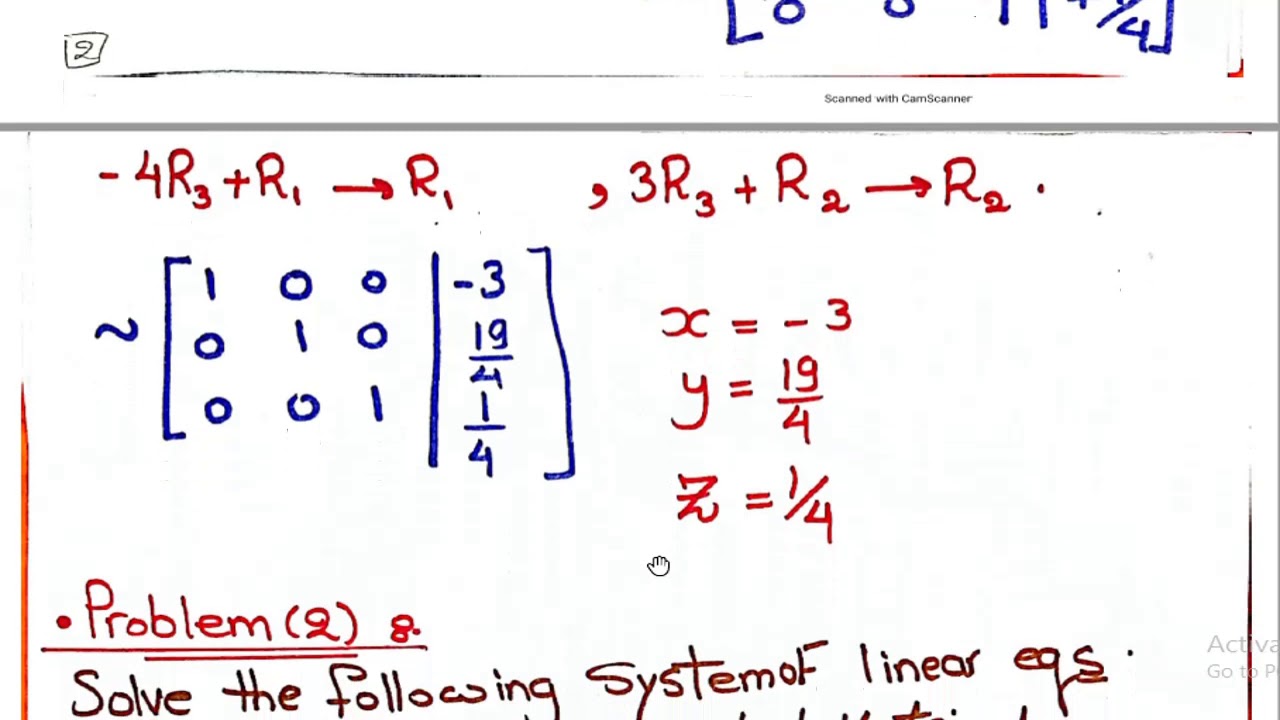 2
Scanned with CamScanner
-4R₃ + R₁ → R₁ , 3R₃ + R₂ → R₂ .
~ [ 1 0 0 | -3 ]
0 1 0 | 19/4
0 0 1 | 1/4
x = -3
y = 19/4
Z = 1/4
• Problem (2) :
Solve the following system of linear eqs .
Activa
Go to P